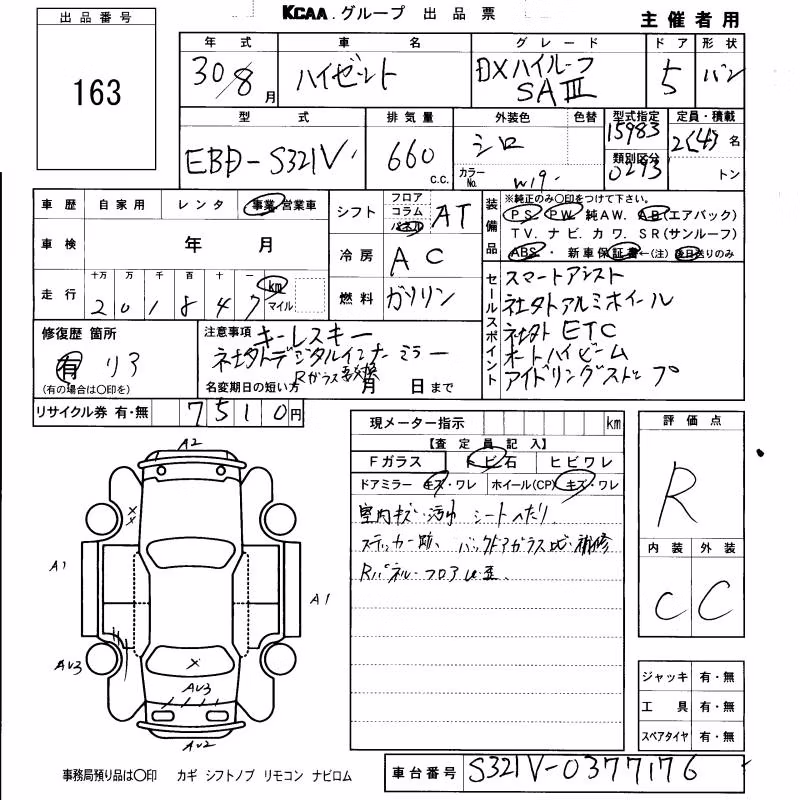 出品番号
163
KCAA.グループ 出品票
主催者用
年式 車名 グレード ドア 形状
30/8月 ハイゼット DXハイルーフ SAⅢ 5 バン
型式 排気量 外装色 色替 型式指定 定員・積載
EBD-S321V 660 c.c. シロ 15983 2(4)名
カラーNo. W19 類別区分 0293 トン
車歴 自家用 レンタ 事業・営業車
車検 年 月
走行 十万 万 千 百 十 一
2 0 1 8 4 7 km マイル
シフト フロア コラム パネル AT
冷房 AC
燃料 ガソリン
装備品
※純正のみ○印をつけて下さい。
PS. PW. 純AW. AB(エアバック)
TV. ナビ. カワ. SR(サンルーフ)
ABS. ・新車保証書←(注)後日送りのみ
セールスポイント
スマートアシスト
社外アルミホイール
社外ETC
オートハイビーム
アイドリングストップ
修復歴 箇所
有 リア
(有の場合は○印を)
注意事項 キーレスキー
社外デジタルインナーミラー
Rガラス交換
名変期日の短い方 月 日まで
リサイクル券 有・無 7510円
現メーター指示 km
【査定員記入】
Fガラス トビ石 ヒビワレ
ドアミラー キズ・ワレ ホイール(CP) キズ・ワレ
室内キズ・汚れ シートヘたり
ステッカー跡、バックドアガラス 補修
Rパネル・フロア 歪、
評価点
R
内装 外装
C C
ジャッキ 有・無
工具 有・無
スペアタイヤ 有・無
A2
XX
A1
A1
AV3
X
AV3
AV2
事務局預り品は○印 カギ シフトノブ リモコン ナビロム
車台番号 S321V-0377176